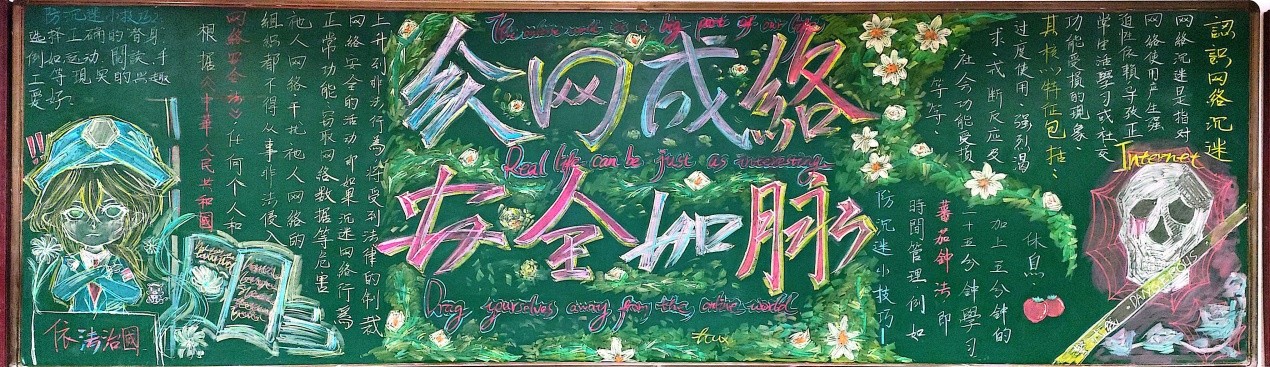 防沉迷小技巧二
选择正确的替身
例如运动、閲读、手
工等現实的兴趣
爱好
根据《中华人民共和國
网络安全法》任何个人和
組织都不得从事非法侵
他人网络干扰他人网络的
正常功能、窃取网络数据等危害
网络安全的活动,即如果沉迷网络行為
上升到非法行為将受到法律的制裁
!!
依法治國
The online world is a big part of our life
众网成络
Real life can be just as interesting
安全如脉
Drag yourselves away from the online world
認識网络沉迷
网络沉迷是指对
网络使用产生强
迫性依赖导致正
常生活學习或社交
功能受損的現象
其核心特征包括、
过度使用、强烈渴
求、戒断反应及
社会功能受損
等等、
防沉迷小技巧一
時間管理例如
蕃茄钟法即
二十五分钟學习
加上五分钟的
休息
Internet
DANGEROUS